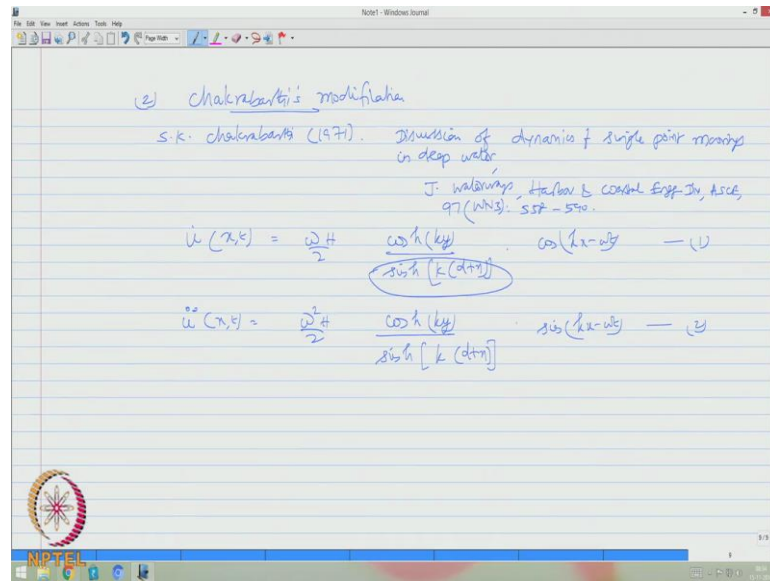 Note1 - Windows Journal
File Edit View Insert Actions Tools Help
Page Width
(2) Chakrabarti's modification
S.K. Chakrabarti (1971). Discussion of dynamics of single point mooring
in deep water,
J. Waterways, Harbor & Coastal Engg Div, ASCE,
97(WW3): 558-590.
u̇ (x,t) = ωH/2 cosh(ky)/sinh[k(d+η)] . cos(kx-ωt) — (1)
ü (x,t) = ω²H/2 cosh(ky)/sinh[k(d+η)] . sin(kx-ωt) — (2)
NPTEL